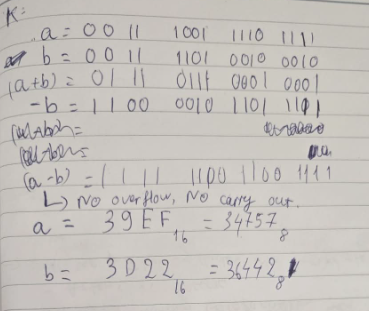 K:
a = 0 0 11 1001 1110 1111
b = 0 0 11 1101 0010 0010
(a+b) = 01 11 0111 0001 0001
-b = 1 1 00 0010 1101 1101
(a-b) = 1 1 11 1100 1100 1111
↳ No overflow, No carry out.
a = 39EF₁₆ = 34757₈
b = 3D22₁₆ = 36442₈